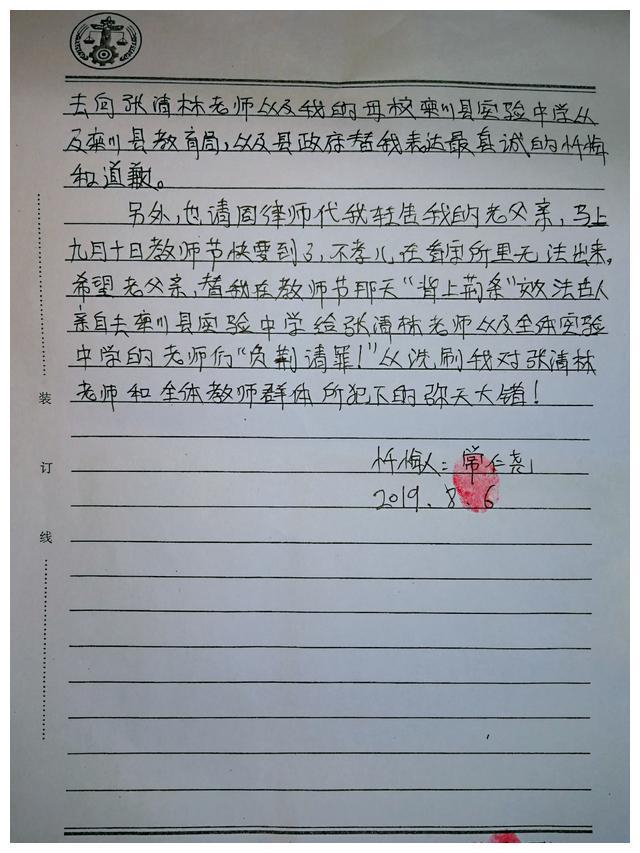 去向张清林老师以及我的母校栾川县实验中学以
及栾川县教育局,以及县政府替我表达最真诚的忏悔
和道歉。
另外,也请周律师代我转告我的老父亲,马上
九月十日教师节快要到了,不孝儿在看守所里无法出来,
希望老父亲,替我在教师节那天“背上荆条”效法古人
亲自去栾川县实验中学给张清林老师以及全体实验
中学的老师们“负荆请罪!”以洗刷我对张清林
老师和全体教师群体所犯下的弥天大错!
忏悔人:常仁尧
2019.8.6
装
订
线